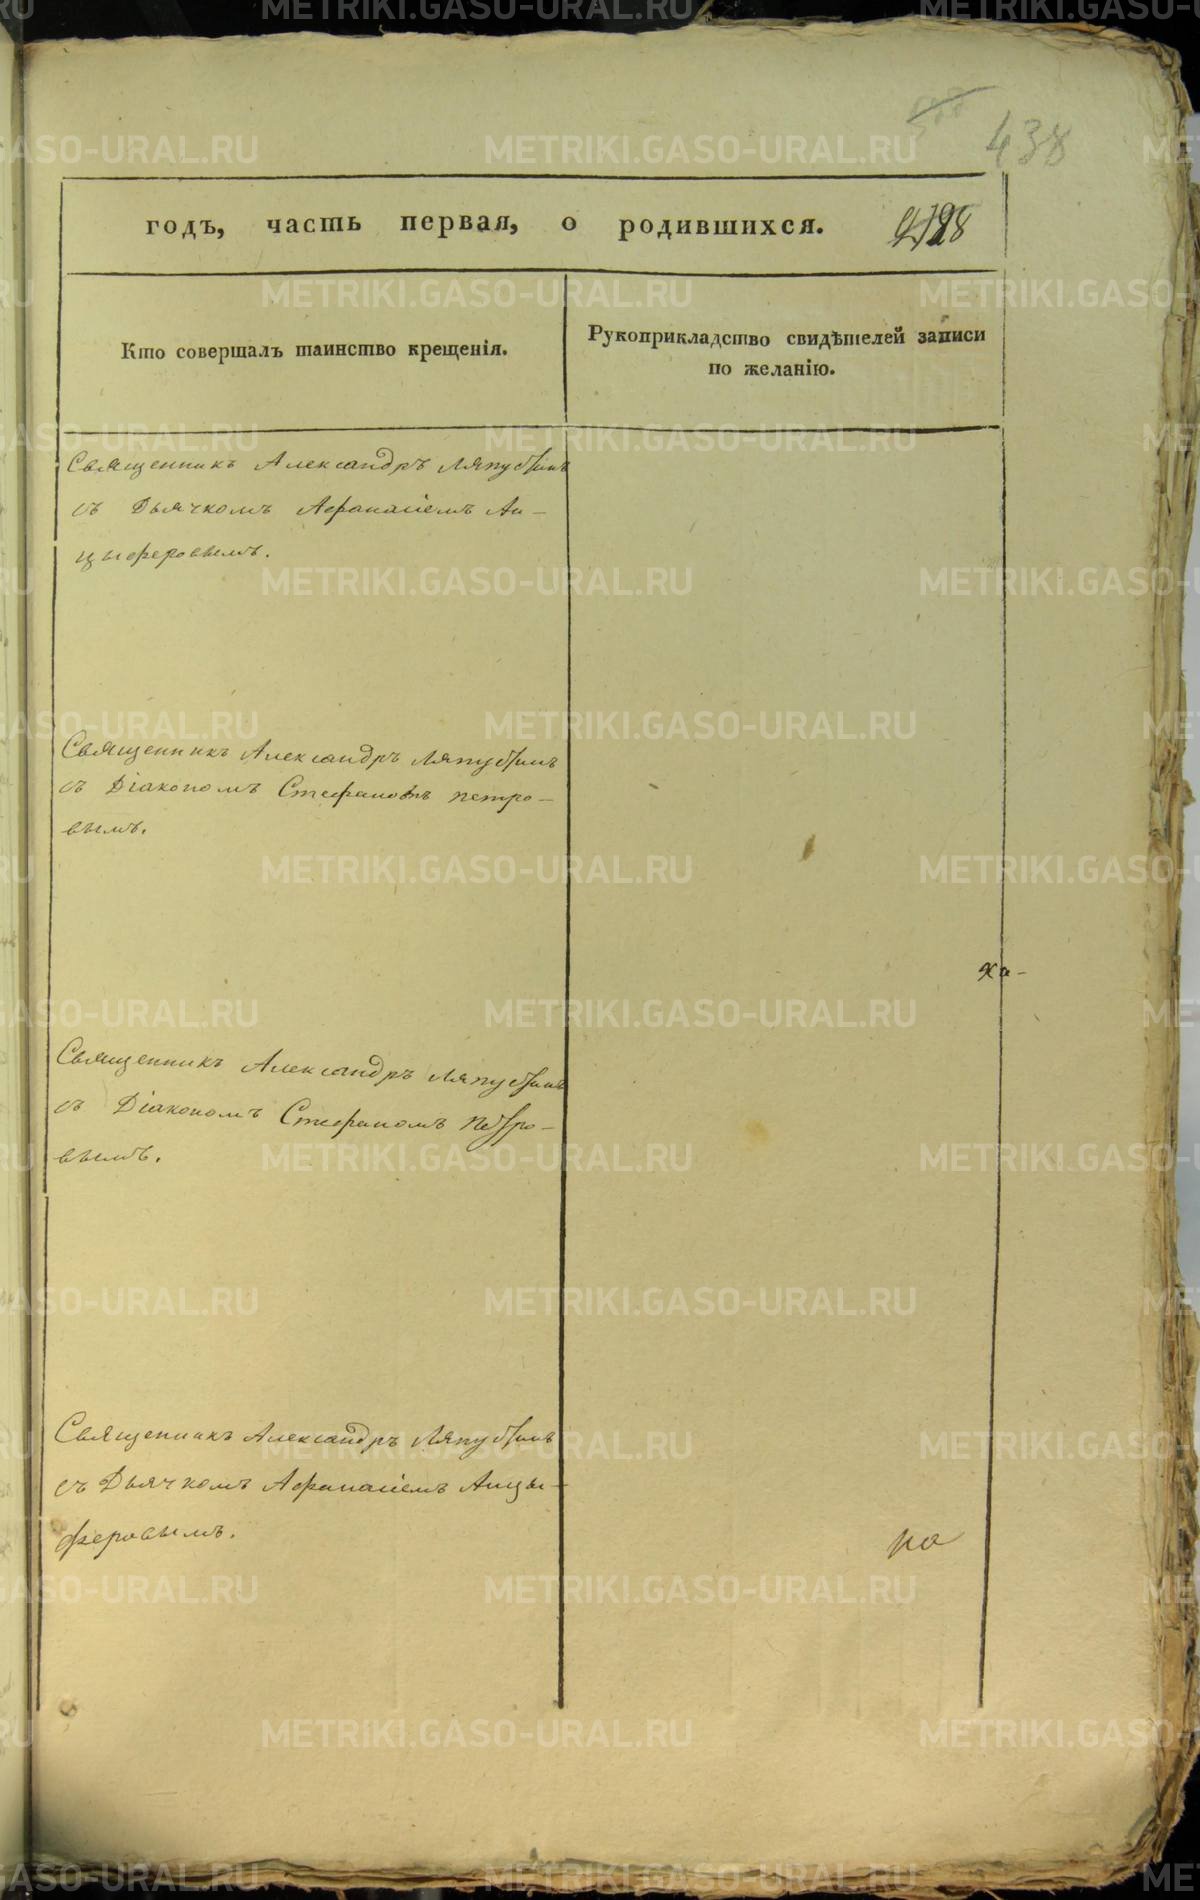 438
годъ, часть первая, о родившихся.
Кто совершалъ таинство крещенія.
Рукоприкладство свидѣтелей записи
по желанію.
Священникъ Александръ Ляпустинъ
съ Дьячкомъ Афанасіемъ Ан-
цыферовымъ.
Священникъ Александръ Ляпустинъ
съ Діакономъ Стефаномъ Петро-
вымъ.
Ха-
Священникъ Александръ Ляпустинъ
съ Діакономъ Стефаномъ Петро-
вымъ.
Священникъ Александръ Ляпустинъ
съ Дьячкомъ Афанасіемъ Анцы-
феровымъ.
но
METRIKI.GASO-URAL.RU